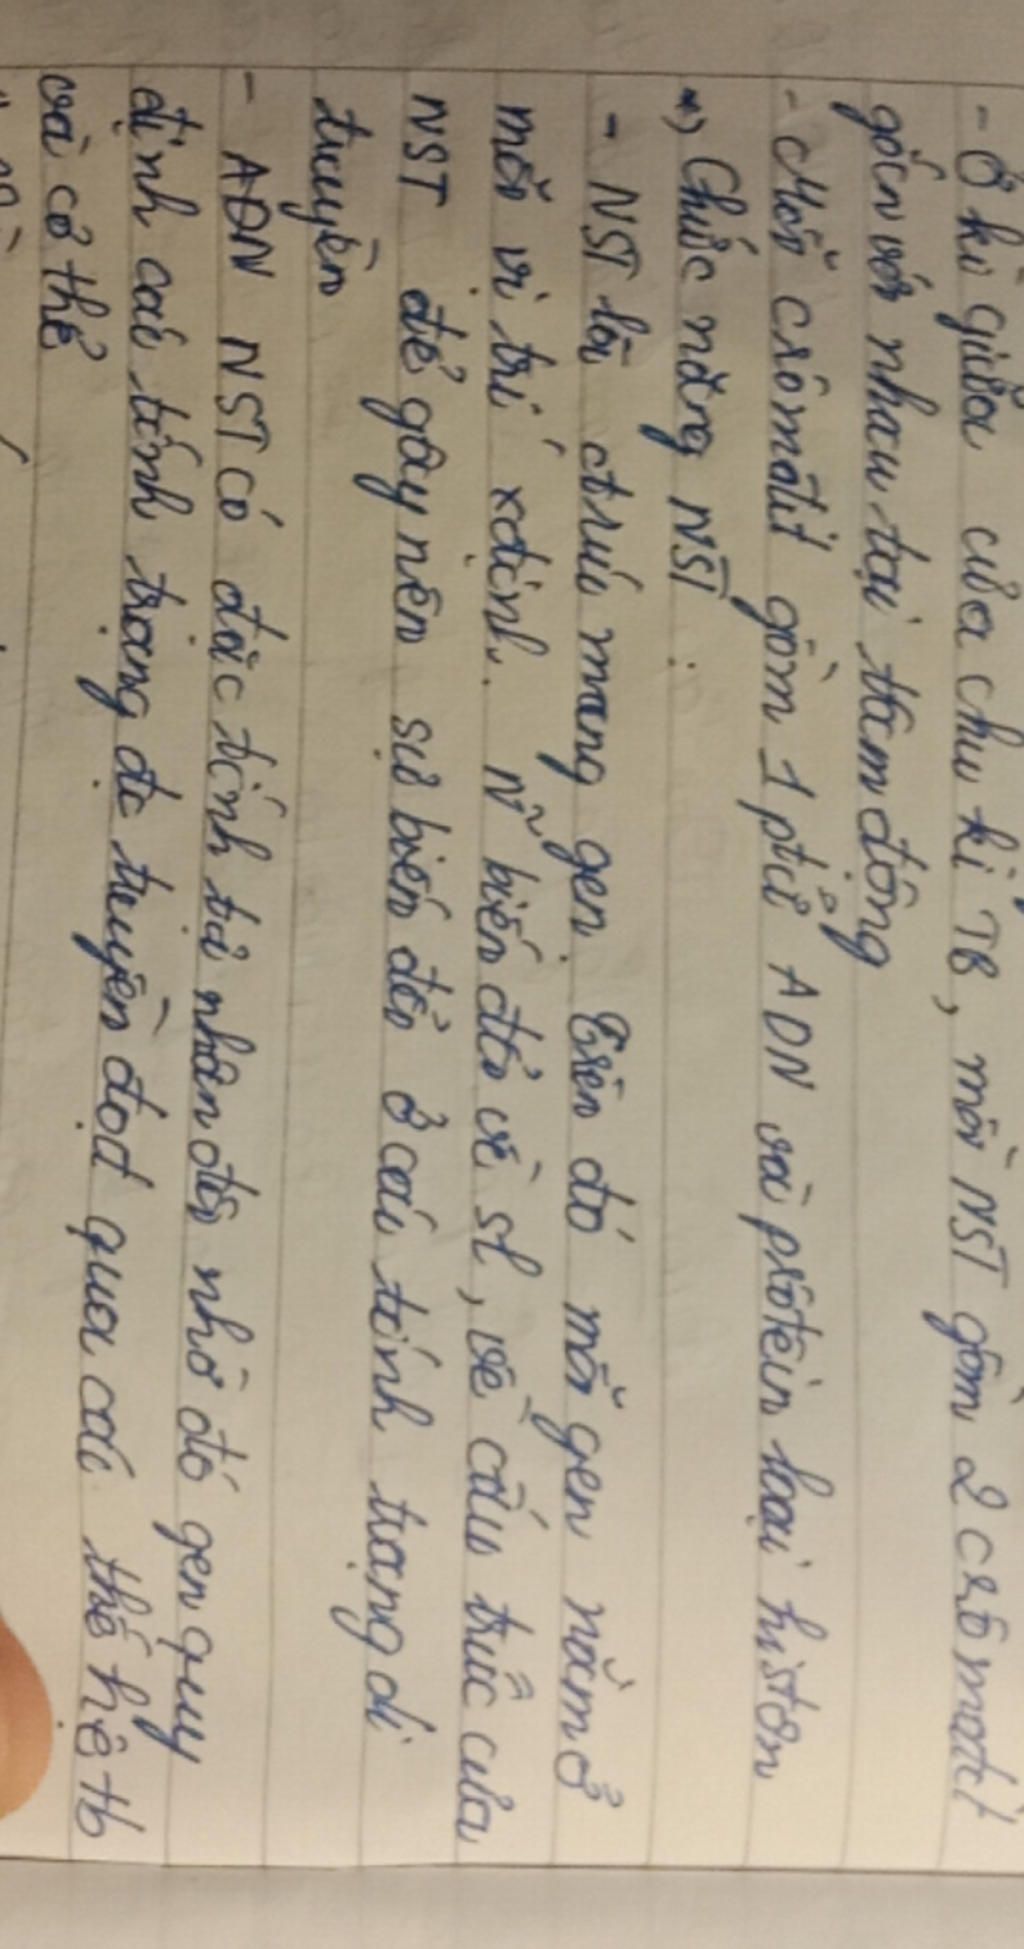 - Ở kì giữa của chu kì TB, mỗi NST gồm 2 crômatit
gắn với nhau tại tâm động
- Mỗi crômatit gồm 1 ptử ADN và prôtêin loại histon
*) Chức năng NST:
- NST là ctrúc mang gen. Trên đó mỗi gen nằm ở
mỗi vị trí xđịnh. N~ biến đổi về sl, về cấu trúc của
NST để gây nên sự biến đổi ở các tính trạng di
truyền
- ADN NST có đặc tính tự nhân đôi nhờ đó gen quy
định các tính trạng đc truyền đạt qua các thế hệ tb
và cơ thể